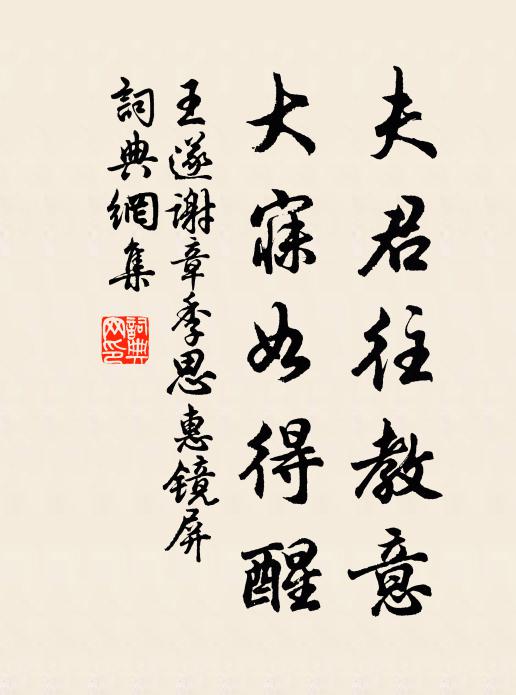 夫君往教意
大寐如得醒
王遂謝章季思惠镜屏
詞典網集
詞典网印